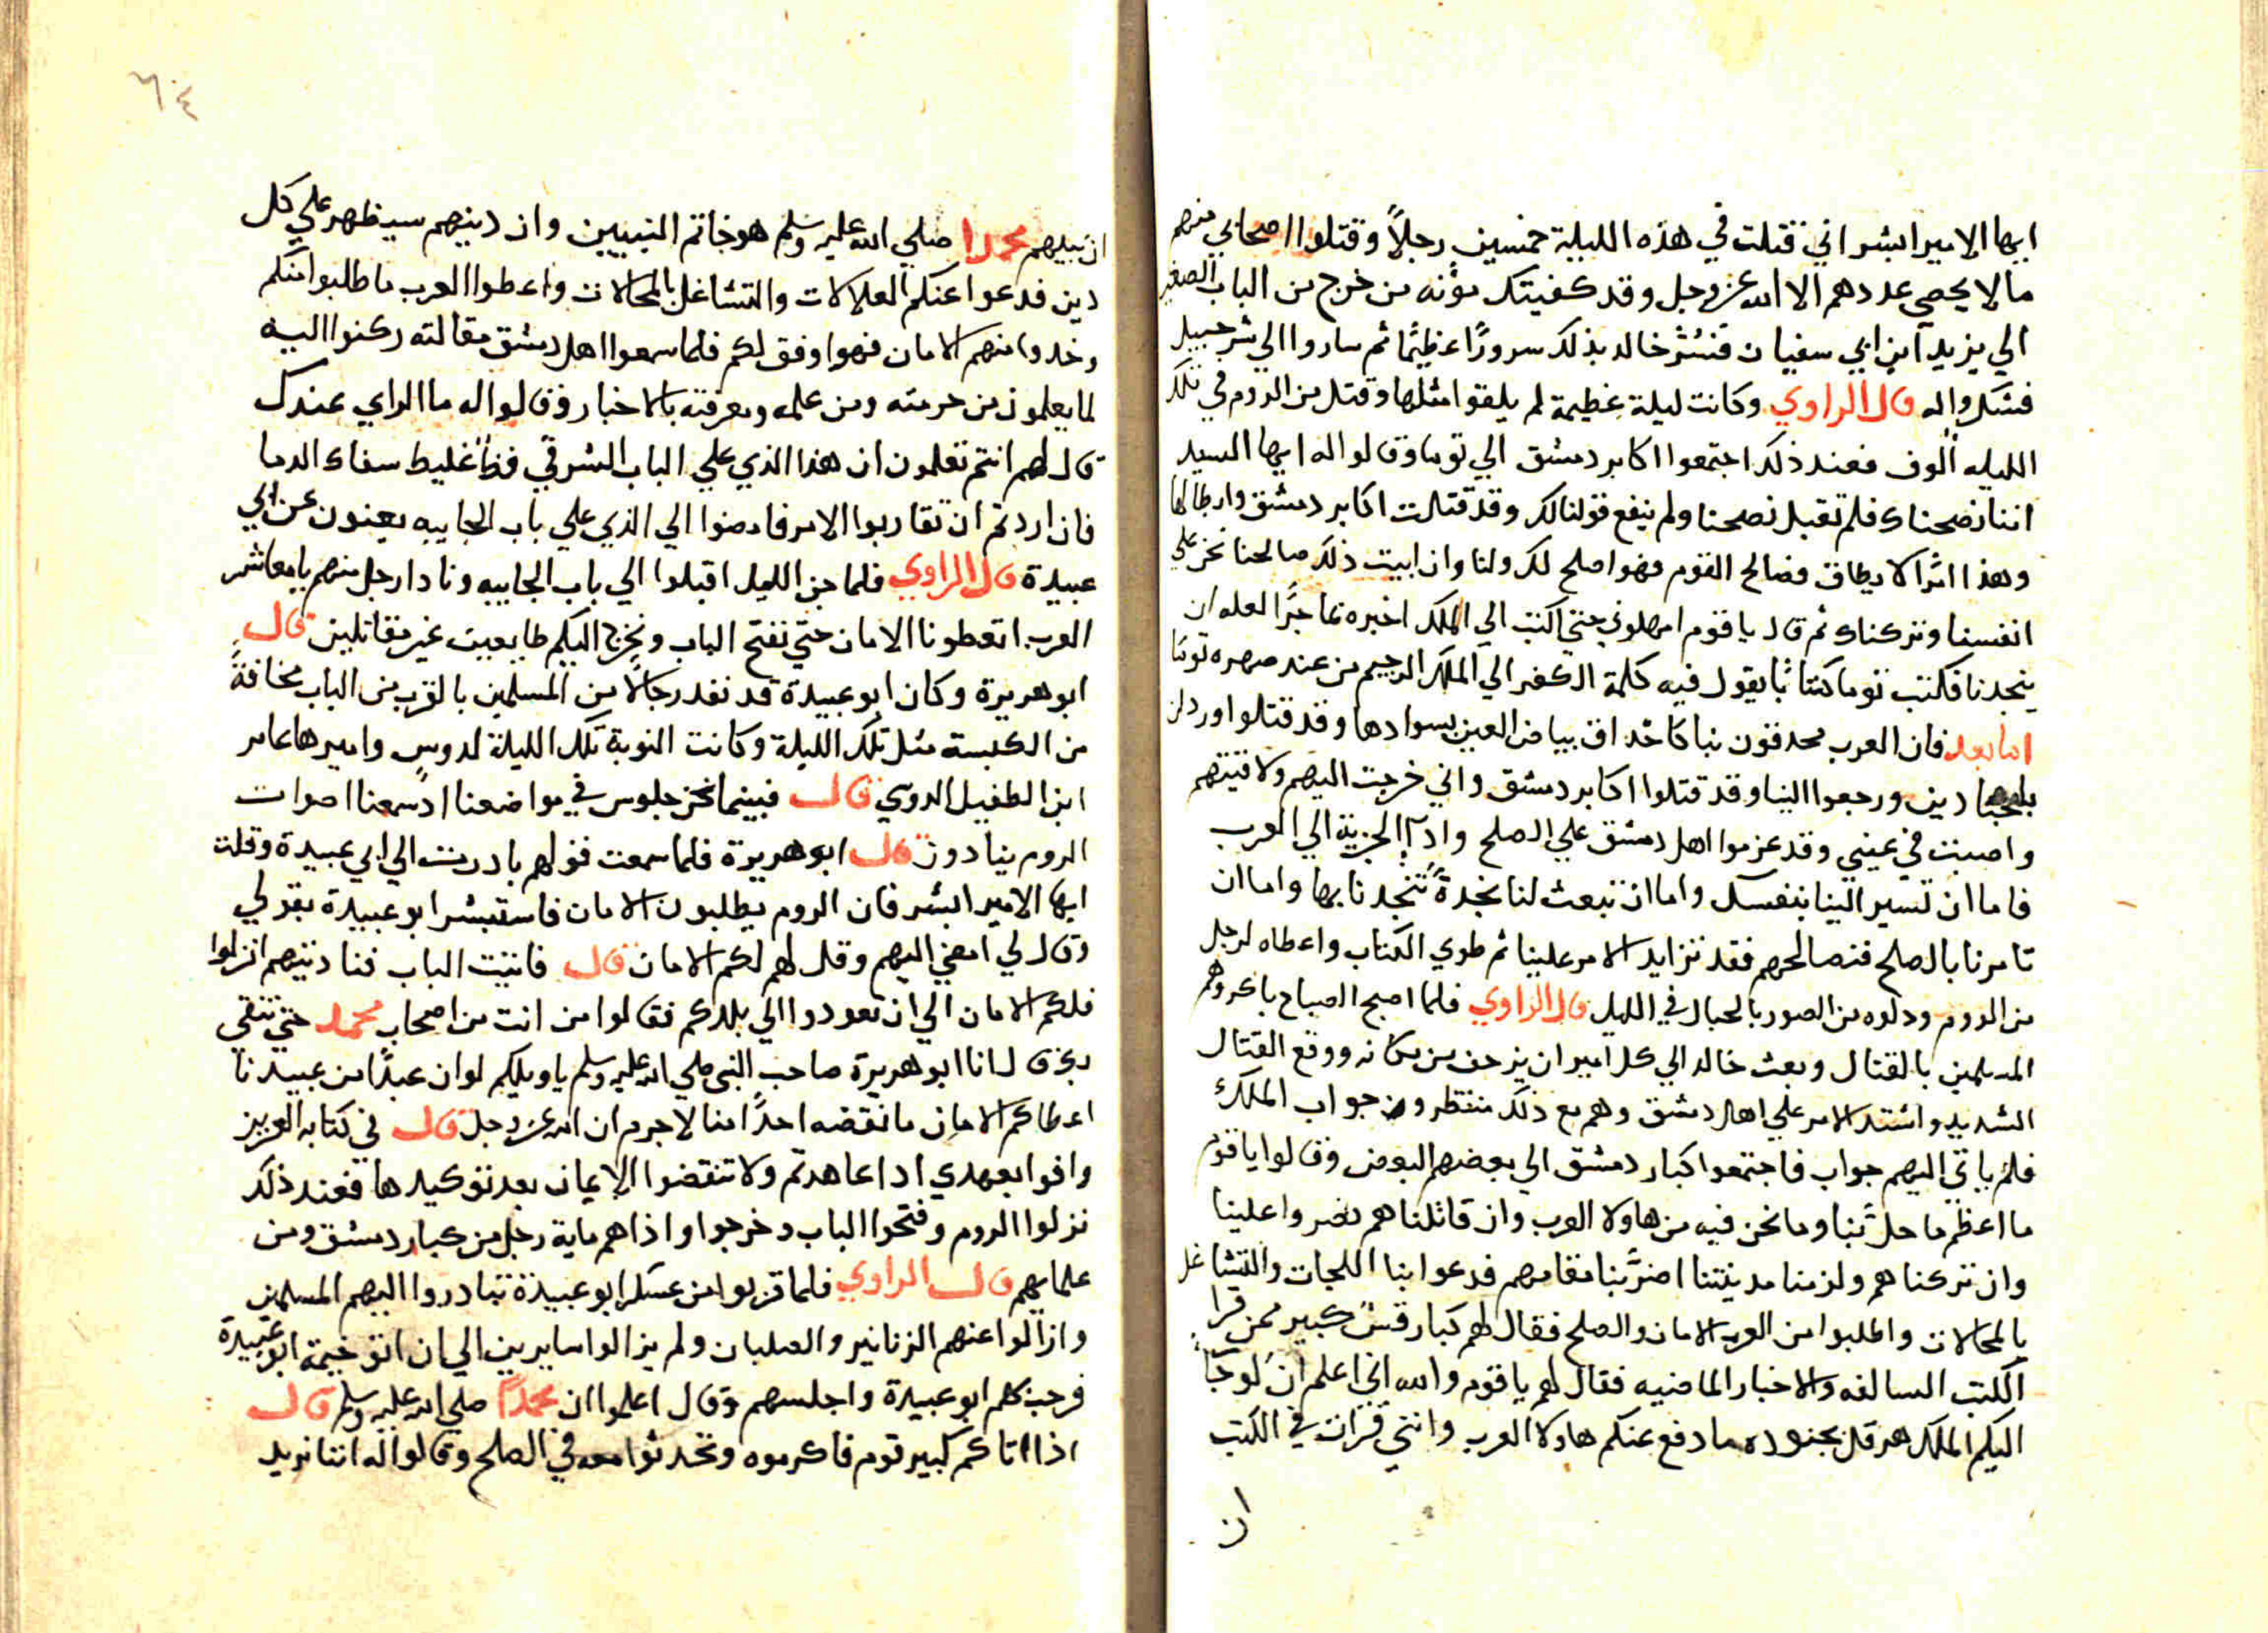 ايها الامير ابشر اني قتلت في هذه الليلة خمسين رجلاً وقتلوا اصحابي منهم
ما لا يحصي عددهم الا الله عز وجل وقد كفيتك مؤنه من خرج من الباب الصغير
الي يزيد ابن ابي سفيان فسُرَّ خالد بذلك سرورًا عظيمًا ثم ساروا الي شرحبيل
فشكروا له قال الراوي وكانت ليلة عظيمة لم يلقوا مثلها وقتل من الروم في تلك
الليله ألوف فعند ذلك اجتمعوا اكابر دمشق الي توما وقالوا له ايها السيد
اننا نصحناك فلم تقبل نصحنا ولم ينفع قولنا لك وقد قتلت اكابر دمشق وابطالها
وهذا امرًا لا يطاق فصالح القوم فهوا صلح لك ولنا وان ابيت ذلك صالحنا نحن علي
انفسنا ونتركناك ثم قال يا قوم امهلوني حتي اكتب الي الملك اخبره بما جرا لعله ان
ينجدنا فكتب توما كتابًا يقول فيه كلمة الكفر الي الملك الرحيم من عند صهره توما
اما بعد فان العرب محدقون بنا كاحداق بياض العين بسوادها وقد قتلوا وردان
باجنادين ورجعوا الينا وقد قتلوا اكابر دمشق واني خرجت اليهم ولاقيتهم
واصبت في عيني وقد عزموا اهل دمشق علي الصلح وادآ الجزية الي العرب
فاما ان تسير الينا بنفسك واما ان تبعث لنا نجدةً تنجدنا بها واما ان
تامرنا بالصلح فنصالحهم فقد تزايد الامر علينا ثم طوي الكتاب واعطاه لرجل
من الروم ودلوه من الصور بالحبال في الليل قال الراوي فلما اصبح الصباح باكروهم
المسلمين بالقتال وبعث خالد الي كل امير ان يزحف من مكانه ووقع القتال
الشديد واشتد الامر علي اهل دمشق وهم مع ذلك منتظرون جواب الملك
فلم ياتي اليهم جواب فاجتمعوا كبار دمشق الي بعضهم البعض وقالوا يا قوم
ما اعظم ما حل بنا وما نحن فيه من هاولا العرب وان قاتلناهم نصروا علينا
وان تركناهم ولزمنا مدينتنا اضرَّ بنا مقامهم فدعوا بنا اللجات والتشاغل
بالمحالات واطلبوا من العرب الامان والصلح فقال لهم كبار قسٌ كبير ممن قرا
الكتب السالفه والاخبار الماضيه فقال لهم يا قوم والله اني اعلم ان لو جآ
اليكم الملك هرقل بجنوده ما دفع عنكم هاولا العرب وانني قرات في الكتب
ان
٦٠٤
ان نبيهم محمدا صلي الله عليه وسلم هو خاتم النبيين وان دينهم سيظهر علي كل
دين فدعوا عنكم العلالات والتشاغل بالمحالات واعطوا العرب ما طلبوا منكم
وخدوا منهم الامان فهوا وفق لكم فلما سمعوا اهل دمشق مقالته ركنوا اليه
لما يعلمون من حرمته ومن علمه ومعرفته بالاخبار وقالوا له ما الراي عندك
قال لهم انتم تعلمون ان هذا الذي علي الباب الشرقي فظٌ غليظ سفاك الدما
فان اردتم ان تقاربوا الامر فامضوا الي الذي علي باب الجابيه يعنون عن ابي
عبيدة قال الراوي فلما جن الليل اقبلوا الي باب الجابيه ونادا رجل منهم يا معاشر
العرب اتعطونا الامان حتي نفتح الباب ونخرج اليكم طايعين غير مقاتلين قال
ابو هريرة وكان ابو عبيدة قد نفد رجالاً من المسلمين بالقرب من الباب مخافةً
من الكبسة مثل تلك الليلة وكانت النوبة تلك الليلة لدوسٍ واميرها عامر
ابن الطفيل الدوسي قال فبينما نحن جلوس في مواضعنا اد سمعنا اصوات
الروم ينادون قال ابو هريرة فلما سمعت قولهم بادرت الي ابي عبيدة وقلت
ايها الامير ابشر فان الروم يطلبون الامان فاستبشر ابو عبيدة بقولي
وقال لي امضي اليهم وقل لهم لكم الامان قال فاتيت الباب فناديتهم انزلوا
فلكم الامان الي ان تعودوا الي بلدكم فقالوا من انت من اصحاب محمد حتي نتقي
بك قال انا ابو هريرة صاحب النبي صلي الله عليه وسلم يا ويلكم لو ان عبدًا من عبيدنا
اعطاكم الامان ما نقضه احدًا منا لا جرم ان الله عز وجل قال في كتابه العزيز
وافوا بعهدي اذا عاهدتم ولا تنقضوا الايمان بعد توكيدها فعند ذلك
نزلوا الروم وفتحوا الباب وخرجوا واذا هم ماية رجل من كبار دمشق ومن
علمايهم قال الراوي فلما قربوا من عسكر ابو عبيدة تبادروا اليهم المسلمين
وازالوا عنهم الزنانير والصلبان ولم يزالوا سايرين الي ان اتو خيمة ابو عبيدة
فرحب بكلهم ابو عبيدة واجلسهم وقال اعلموا ان محمدًا صلي الله عليه وسلم قال
اذا اتاكم كبير قوم فاكرموه وتحدثوا معه في الصلح وقالوا له اننا نريد